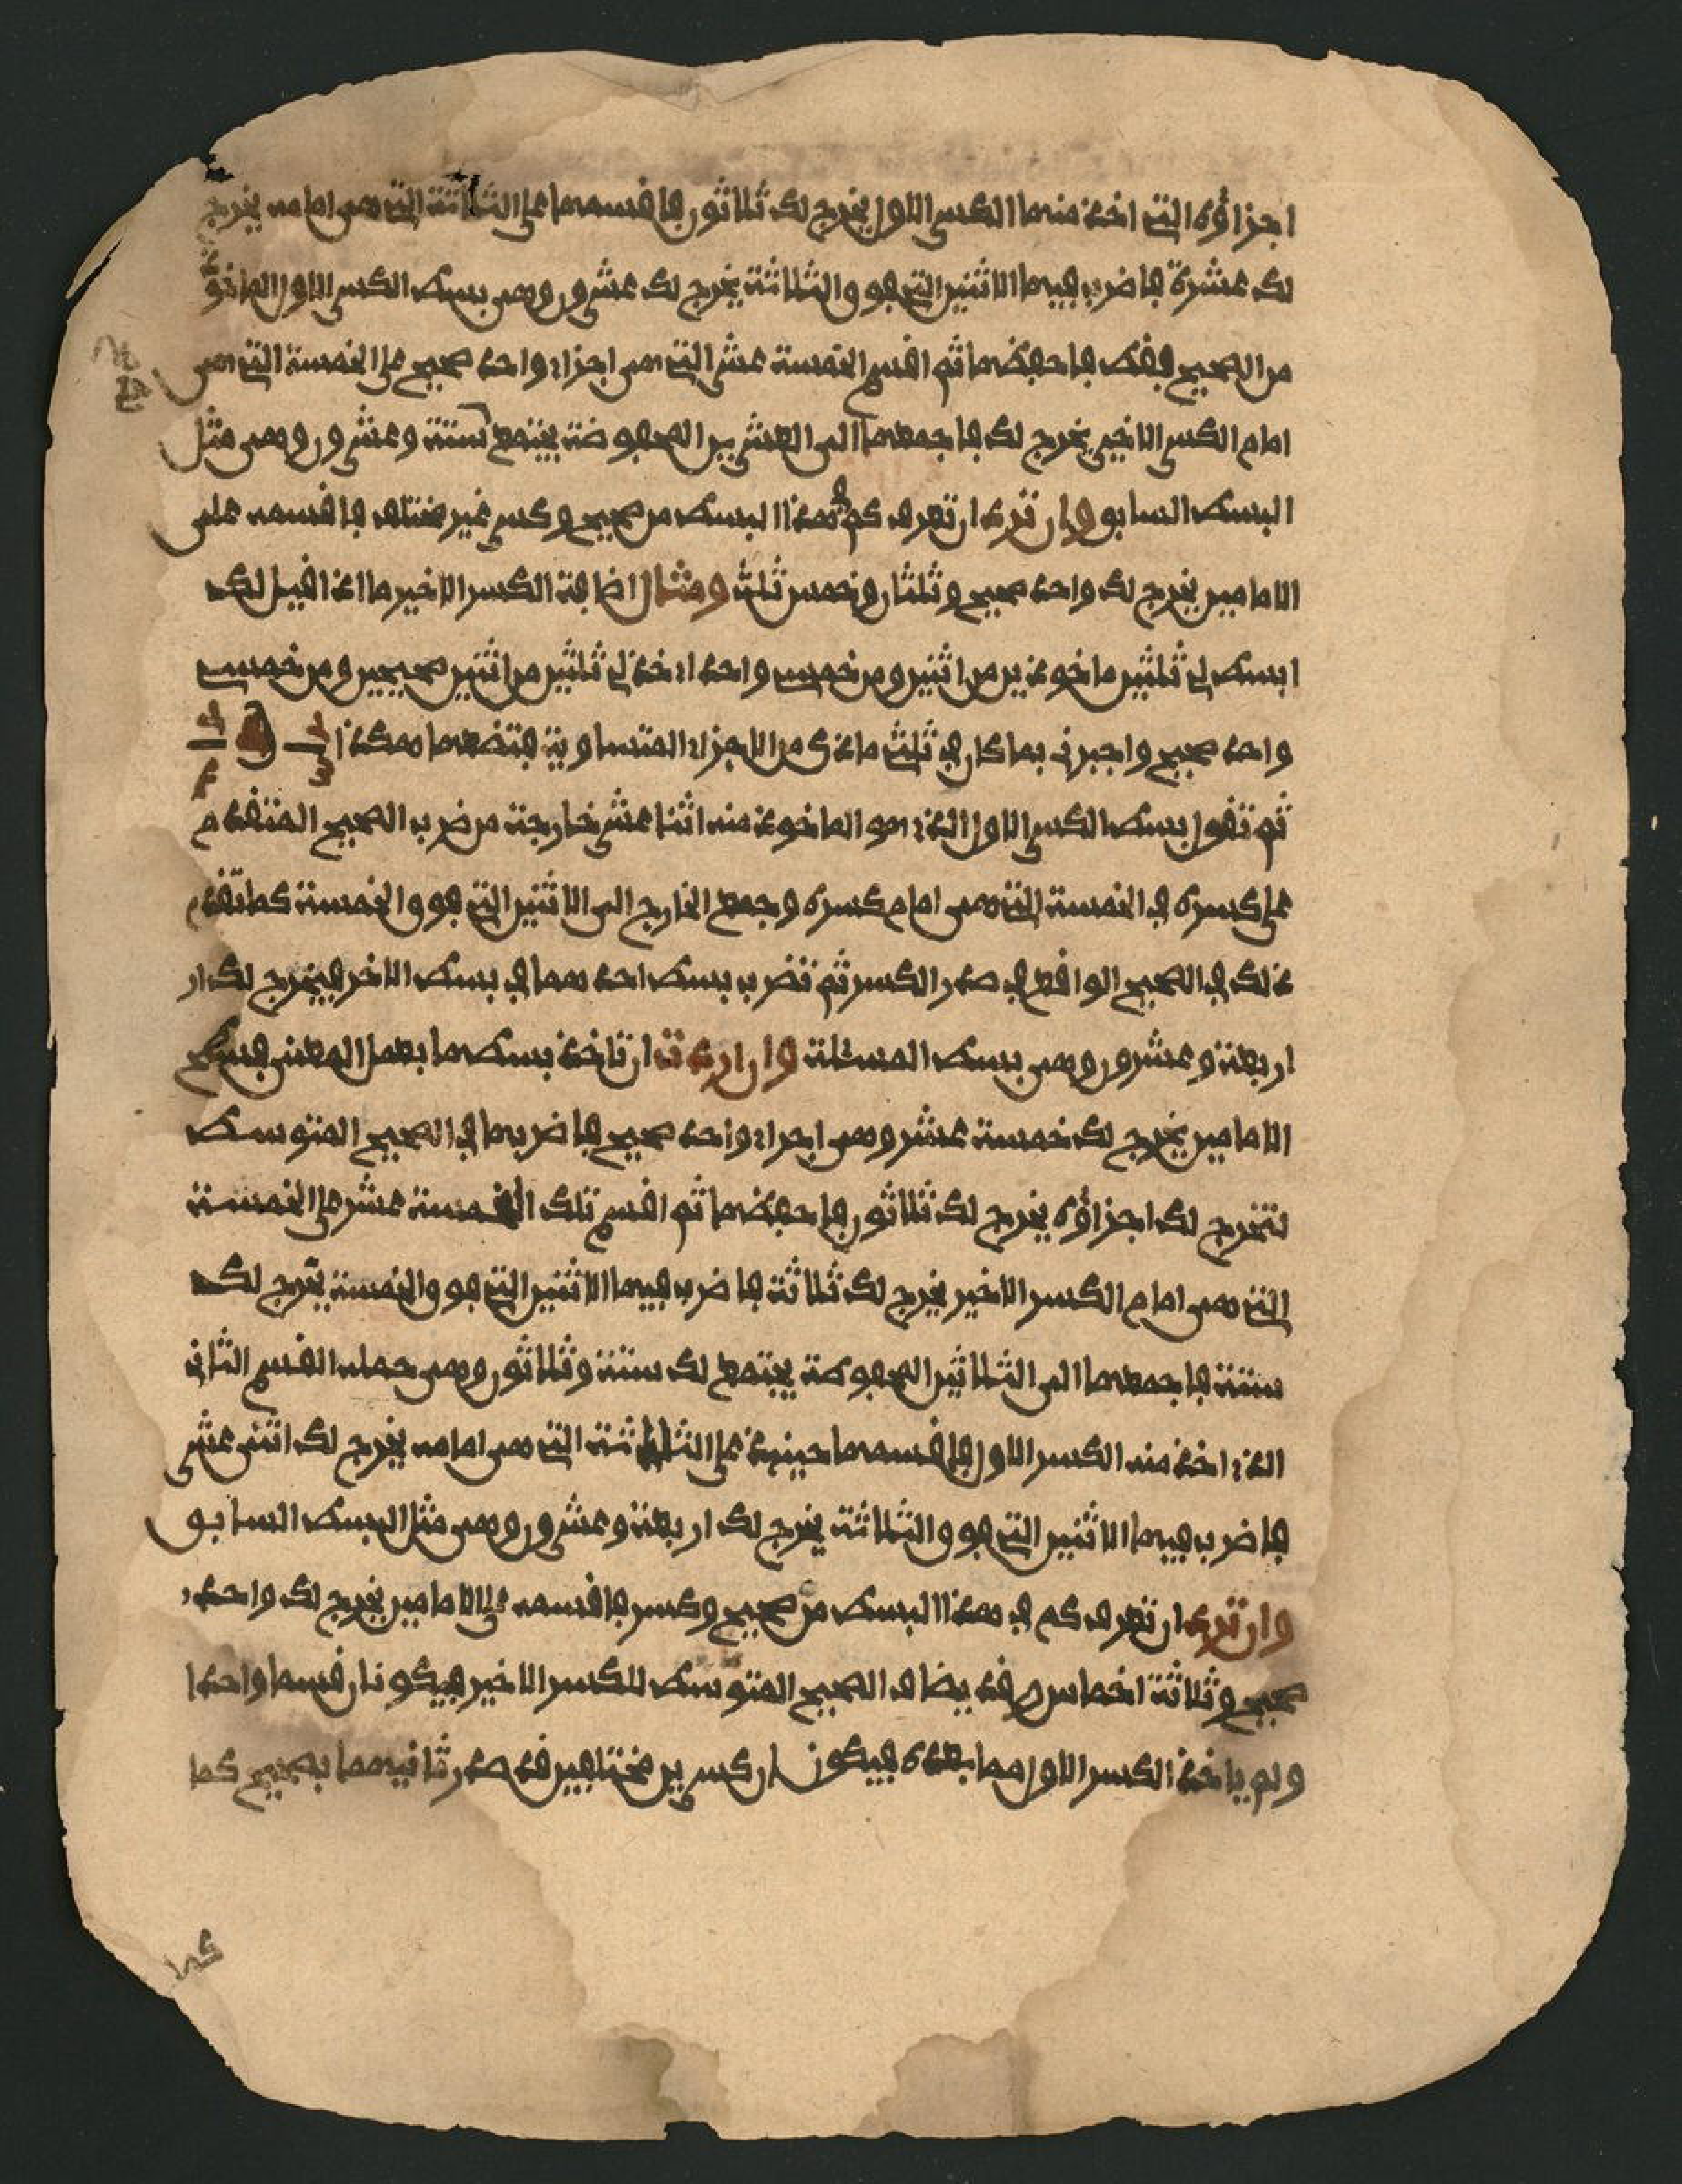 اجزاؤه التي اخذ منها الكسر الاول يخرج لك ثلاثون فاقسمها على الثلاثة التي هي امامه يخرج
لك عشرة فاضرب فيها الاثنين التي فوق الثلاثة يخرج لك عشرون وهي بسط الكسر الاول الماخوذ
من الصحيح فقط فاحفظها ثم اقسم الخمسة عشر التي هي اجزاء واحد صحيح على الخمسة التي هي
امام الكسر الاخير يخرج لك فاجمعها الى العشرين المحفوظة يجتمع ستة وعشرون وهي مثل
البسط السابق وان ترد ان تعرف كم في هذا البسط من صحيح وكسر غير مختلف فاقسمه على
الامامين يخرج لك واحد صحيح وثلثان وخمس ثلث ومثال اضافة الكسر الاخير ما اذا قيل لك
ابسط لي ثلثين ماخوذين من اثنين ومن خمسي واحد اي خذ لي ثلثين من اثنين صحيحين ومن خمسي
واحد صحيح واجبرني بما كان في ثلثي ما ذكر من الاجزاء المتساوية فتضعها هكذا
ثم تقول بسط الكسر الاول الذي هو الماخوذ منه اثنا عشر خارجة من ضرب الصحيح المتقدم
على كسره في الخمسة التي هي امام كسره وجمع الخارج الى الاثنين التي فوق الخمسة كما تقدم
ذلك في الصحيح الواقع في صدر الكسر ثم تضرب بسط احدهما في بسط الاخر فيخرج لك ار
اربعة وعشرون وهي بسط المسئلة وان اردت ان تاخذ بسطها بعمل المعنى فسطح
الامامين يخرج لك خمسة عشر وهي اجزاء واحد صحيح فاضربها في الصحيح المتوسط
لتخرج لك اجزاؤه يخرج لك ثلاثون فاحفظها ثم اقسم تلك الخمسة عشر على الخمسة
التي هي امام الكسر الاخير يخرج لك ثلاثة فاضرب فيها الاثنين التي فوق الخمسة يخرج لك
ستة فاجمعها الى الثلاثين المحفوظة يجتمع لك ستة وثلاثون وهي جملة القسم الثاني
الذي اخذ منه الكسر الاول فاقسمها حينئذ على الثلاثة التي هي امامه يخرج لك اثنى عشر
فاضرب فيها الاثنين التي فوق الثلاثة يخرج لك اربعة وعشرون وهي مثل البسط السابق
وان ترد ان تعرف كم في هذا البسط من صحيح وكسر فاقسمه على الامامين يخرج لك واحد
صحيح وثلاثة اخماس وقد يضاف الصحيح المتوسط للكسر الاخير فيكونان قسما واحدا
ولم ياخذ الكسر الاول مما بعده فيكونان كسرين مختلفين قد صدر ثانيهما بصحيح كما
كما